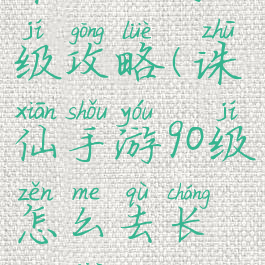 jí gōng lüè zhū
级攻略(诛
xiān shǒu yóu jí
仙手游90级
zěn me qù cháng
怎么去长